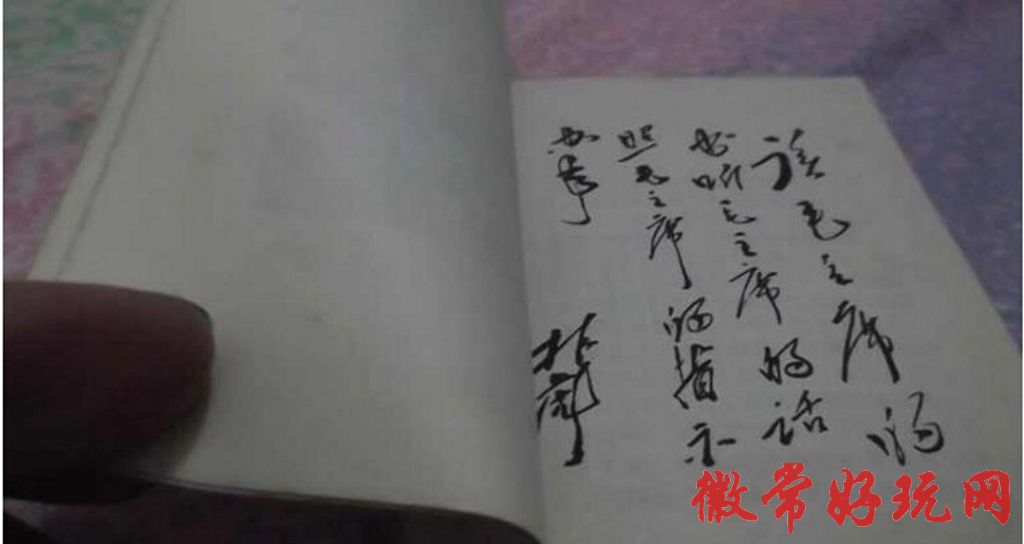 读毛主席的
书听毛主席的话
照毛主席的指示
办事
林彪
徽常好玩网